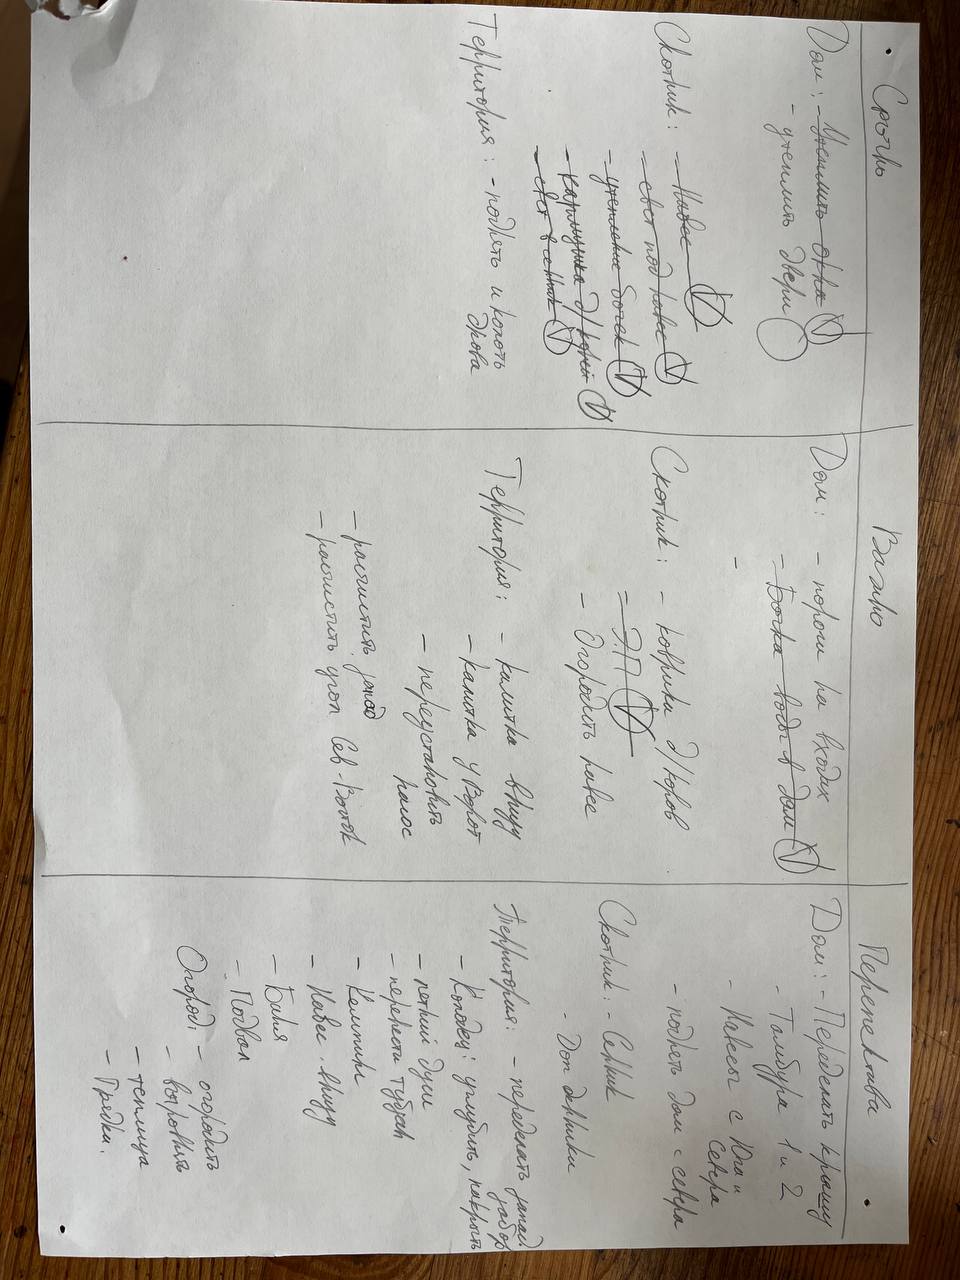 Срочно
Дом: - Утеплить окна
- утеплить двери
Скотник: - Навес
- свет под навес
- утепление бочек
- кормушка д/коней
- свет в сенник
Территория: - поднять и колоть
дрова
Важно
Дом: - пороги на входах
- Бочка воды в дом
-
Скотник: - коврики д/коров
- ЭП
- Огородить навес
Территория: - калитка внизу
- калитка у Ворот
- переустановить
насос
- расчистить запад
- расчистить угол Сев-Восток
Перспектива
Дом: - Переделать крышу
- Тамбура 1 и 2
- Навесы с Юга и
Севера
- поднять дом с севера
Скотник: - Сенник
- Доп денники
Территория: - переделать запад.
забор
- Колодец: углубить, накрыть
- летний душ
- перенести тубзик
- Кемпинг
- Навес внизу
- Баня
- Подвал
Огород: - огородить
- выровнять
- теплица
- Грядки.